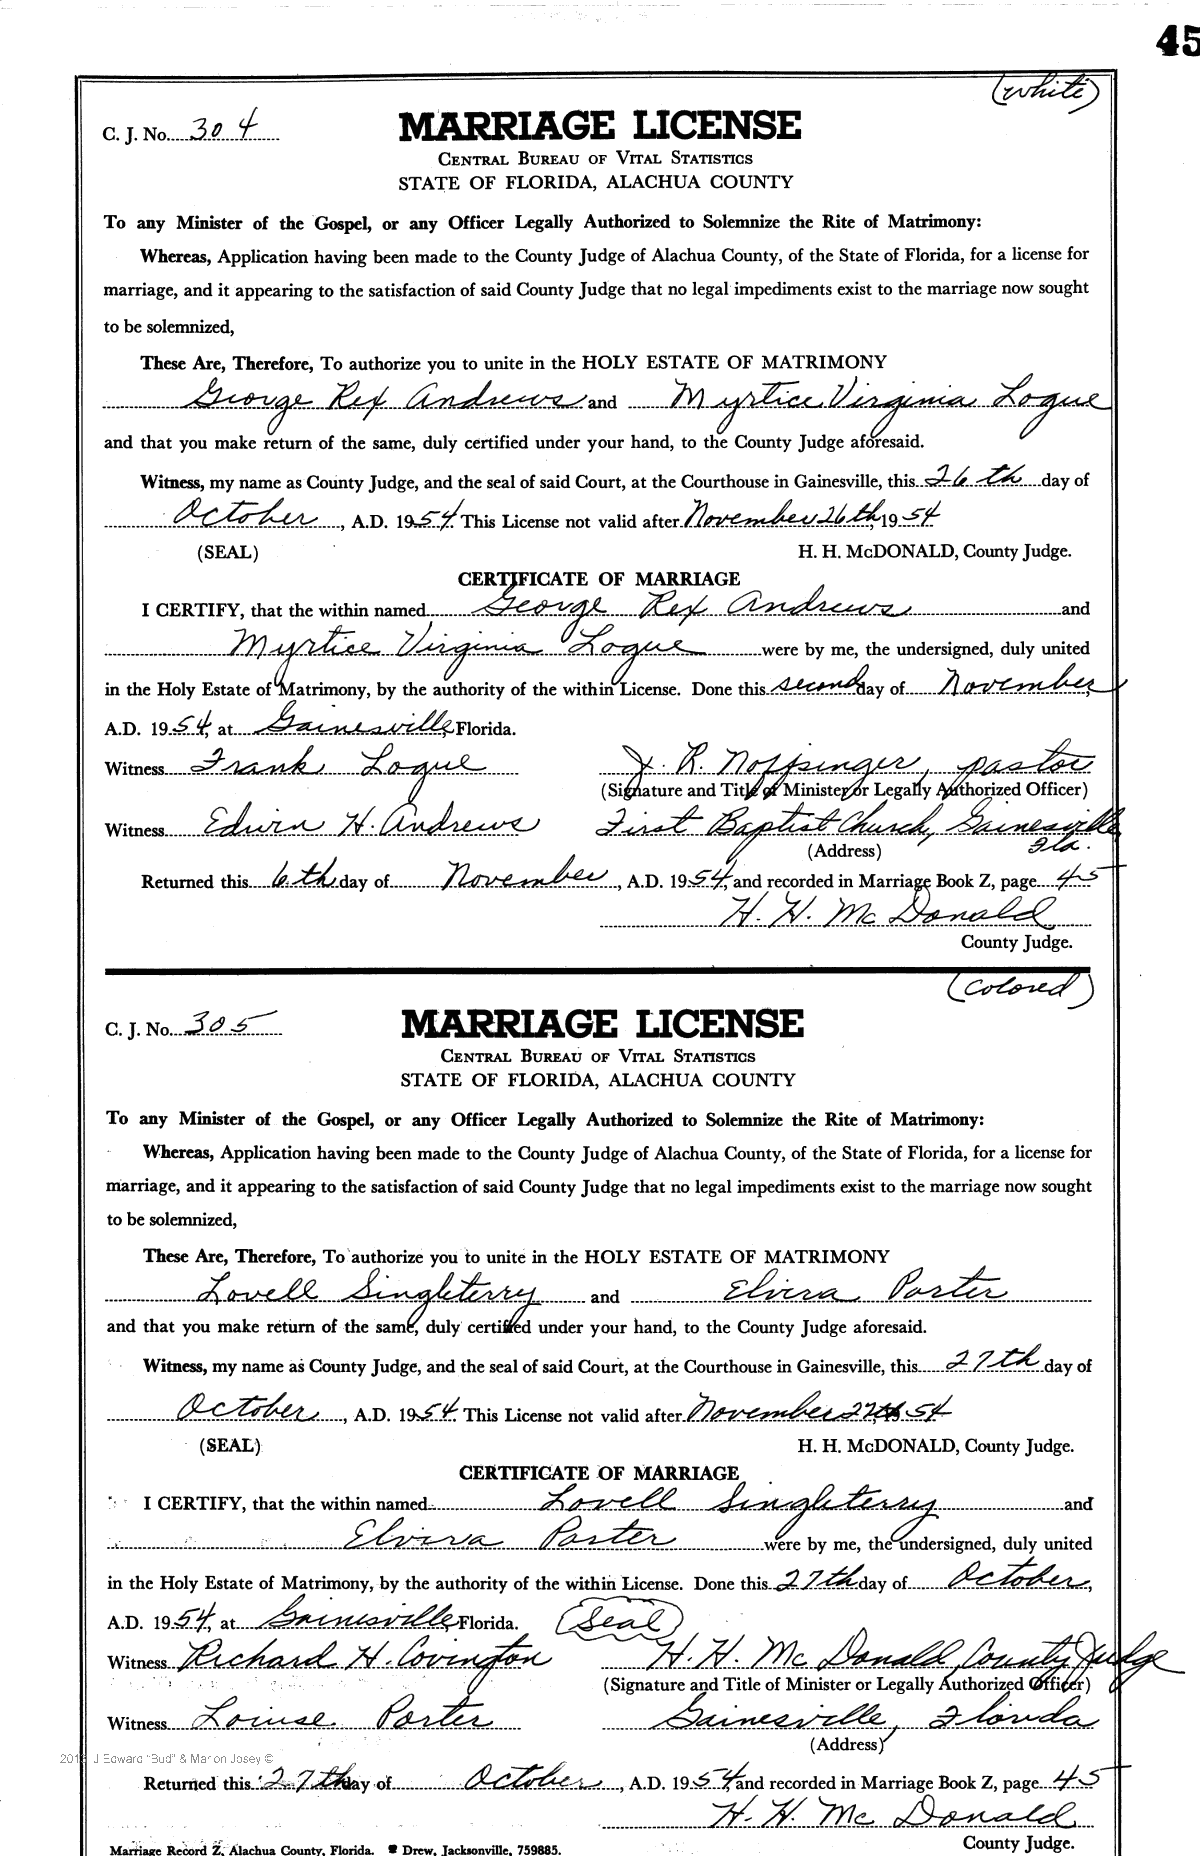 45
(white)
C. J. No. 304
MARRIAGE LICENSE
CENTRAL BUREAU OF VITAL STATISTICS
STATE OF FLORIDA, ALACHUA COUNTY
To any Minister of the Gospel, or any Officer Legally Authorized to Solemnize the Rite of Matrimony:
Whereas, Application having been made to the County Judge of Alachua County, of the State of Florida, for a license for
marriage, and it appearing to the satisfaction of said County Judge that no legal impediments exist to the marriage now sought
to be solemnized,
These Are, Therefore, To authorize you to unite in the HOLY ESTATE OF MATRIMONY
George Rex Andrews and Myrtice Virginia Logue
and that you make return of the same, duly certified under your hand, to the County Judge aforesaid.
Witness, my name as County Judge, and the seal of said Court, at the Courthouse in Gainesville, this 26th day of
October, A.D. 1954. This License not valid after November 26th, 1954
(SEAL) H. H. McDONALD, County Judge.
CERTIFICATE OF MARRIAGE
I CERTIFY, that the within named George Rex Andrews and
Myrtice Virginia Logue were by me, the undersigned, duly united
in the Holy Estate of Matrimony, by the authority of the within License. Done this second day of November,
A.D. 1954, at Gainesville, Florida.
Witness Frank Logue J. R. Noffsinger, pastor
(Signature and Title of Minister or Legally Authorized Officer)
Witness Edwin H. Andrews First Baptist Church, Gainesville
Fla.
(Address)
Returned this 6th day of November, A.D. 1954, and recorded in Marriage Book Z, page 45
H. H. McDonald
County Judge.
(colored)
C. J. No. 305
MARRIAGE LICENSE
CENTRAL BUREAU OF VITAL STATISTICS
STATE OF FLORIDA, ALACHUA COUNTY
To any Minister of the Gospel, or any Officer Legally Authorized to Solemnize the Rite of Matrimony:
Whereas, Application having been made to the County Judge of Alachua County, of the State of Florida, for a license for
marriage, and it appearing to the satisfaction of said County Judge that no legal impediments exist to the marriage now sought
to be solemnized,
These Are, Therefore, To authorize you to unite in the HOLY ESTATE OF MATRIMONY
Lovell Singleterry and Elvira Porter
and that you make return of the same, duly certified under your hand, to the County Judge aforesaid.
Witness, my name as County Judge, and the seal of said Court, at the Courthouse in Gainesville, this 27th day of
October, A.D. 1954. This License not valid after November 27th, 54
(SEAL) H. H. McDONALD, County Judge.
CERTIFICATE OF MARRIAGE
I CERTIFY, that the within named Lovell Singleterry and
Elvira Porter were by me, the undersigned, duly united
in the Holy Estate of Matrimony, by the authority of the within License. Done this 27th day of October,
A.D. 1954, at Gainesville, Florida. (Seal)
Witness Richard H. Covington H. H. McDonald County Judge
(Signature and Title of Minister or Legally Authorized Officer)
Witness Louise Porter Gainesville, Florida
(Address)
J Edward "Bud" & Marion Josey ©
Returned this 27th day of October, A.D. 1954, and recorded in Marriage Book Z, page 45
H. H. McDonald
County Judge.
Marriage Record Z, Alachua County, Florida. Drew, Jacksonville, 759885.